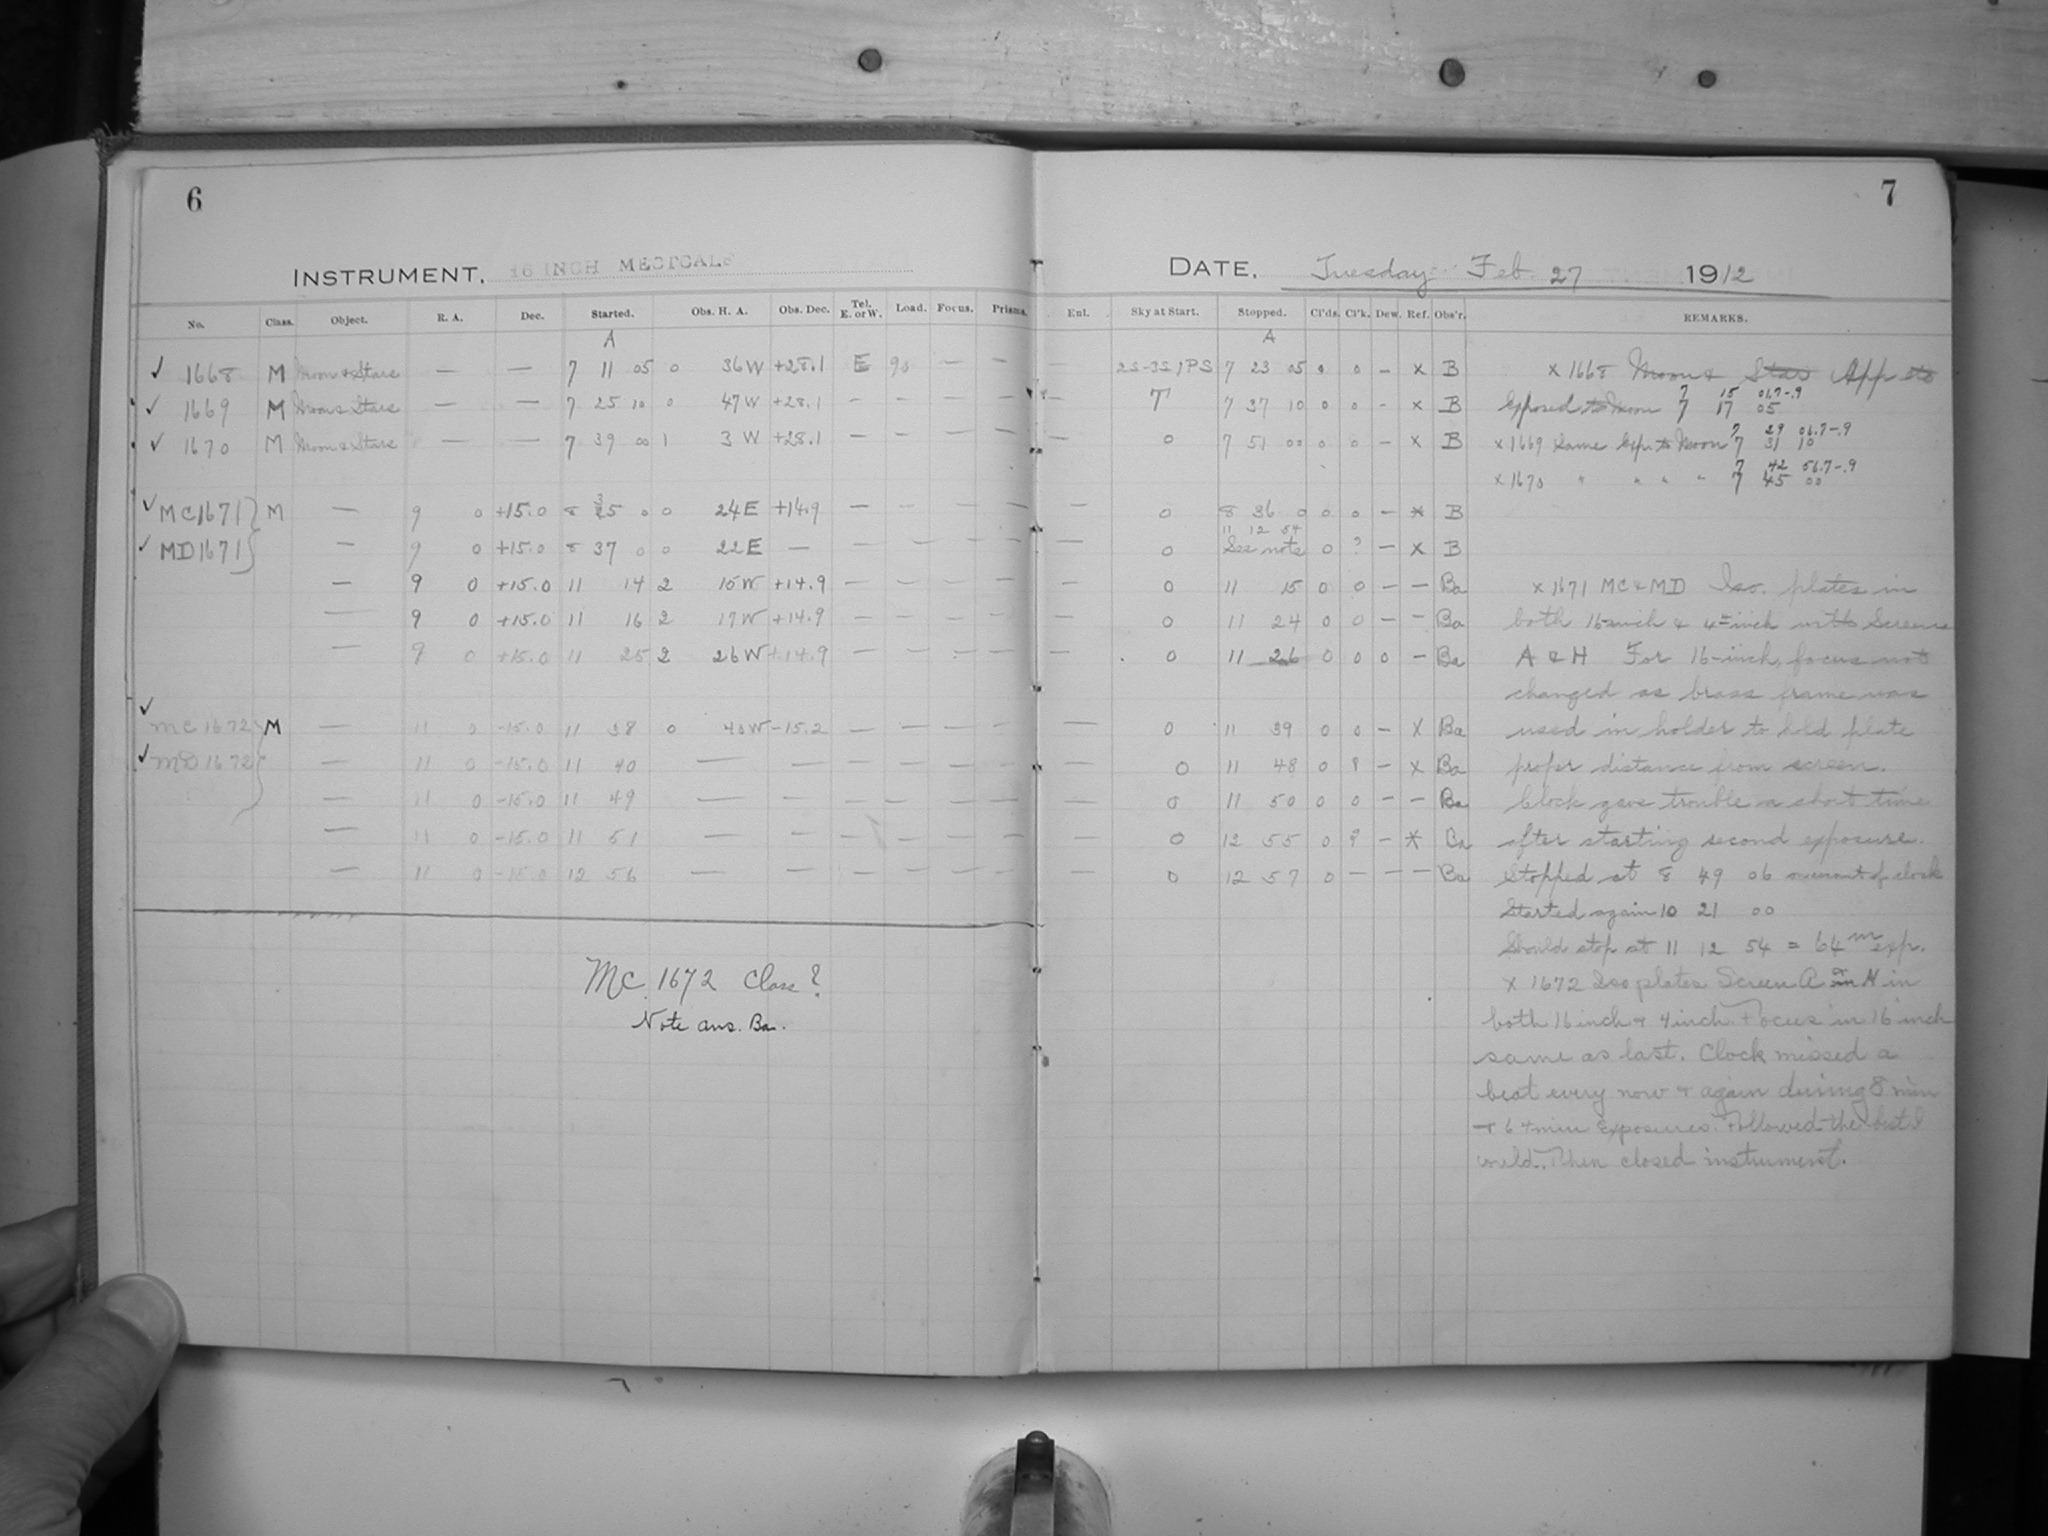 6
7
INSTRUMENT. 16 INCH METCALF
DATE. Tuesday Feb. 27 1912
No. Class. Object. R. A. Dec. Started. Obs. H. A. Obs. Dec. Tel. E. or W. Load. Focus. Prisms. Enl. Sky at Start. Stopped. Cl'ds. Cl'k. Dew. Ref. Obs'r. REMARKS.
A A
✓ 1668 M Moon & Stars — — 7 11 05 0 36 W +28.1 E 90 — — — 2S-3S1PS 7 23 05 0 0 - x B x 1668 Moon & Star App to
✓ 1669 M Moon & Stars — — 7 25 10 0 47 W +28.1 — — — — — T 7 37 10 0 0 - x B Exposed to Moon 7 15 06.7-.9
7 17 05
✓ 1670 M Moon & Stars — — 7 39 00 1 3 W +28.1 — — — — — 0 7 51 00 0 0 - x B x 1669 Same Exp. to Moon 7 29 06.7-.9
7 31 10
x 1670 " " " " 7 42 56.7-.9
7 45 00
✓ MC1671 M — 9 0 +15.0 8 35 0 0 24 E +14.9 — — — — — 0 8 36 0 0 0 — x B
11 12 54
✓ MD1671 — 9 0 +15.0 8 37 0 0 22 E — — — — — — 0 See note 0 ? — x B
— 9 0 +15.0 11 14 2 15 W +14.9 — — — — — 0 11 15 0 0 — — Ba x 1671 MC & MD Iso. plates in
— 9 0 +15.0 11 16 2 17 W +14.9 — — — — — 0 11 24 0 0 — — Ba both 16-inch & 4-inch with Screens
— 9 0 +15.0 11 25 2 26 W +14.9 — — — — — 0 11 26 0 0 0 — Ba A & H For 16-inch, focus not
changed as brass frame was
✓ MC 1672 M — 11 0 -15.0 11 38 0 40 W -15.2 — — — — — 0 11 39 0 0 — x Ba used in holder to hold plate
✓ MD 1672 — 11 0 -15.0 11 40 — — — — — — — 0 11 48 0 ? — x Ba proper distance from screen.
— 11 0 -15.0 11 49 — — — — — — — 0 11 50 0 0 — — Ba Clock gave trouble a short time
— 11 0 -15.0 11 51 — — — — — — — 0 12 55 0 ? — x Ba after starting second exposure.
— 11 0 -15.0 12 56 — — — — — — — 0 12 57 0 — — — Ba Stopped at 8 49 06 on account of clock
Started again 10 21 00
Should stop at 11 12 54 = 64m exp.
MC 1672 Class?
x 1672 Iso plates Screen A & H in
Note ans. Ba.
both 16 inch & 4 inch. Focus in 16 inch
same as last. Clock missed a
beat every now & again during 8 min
& 64 min exposures. Followed the best I
could. Then closed instrument.